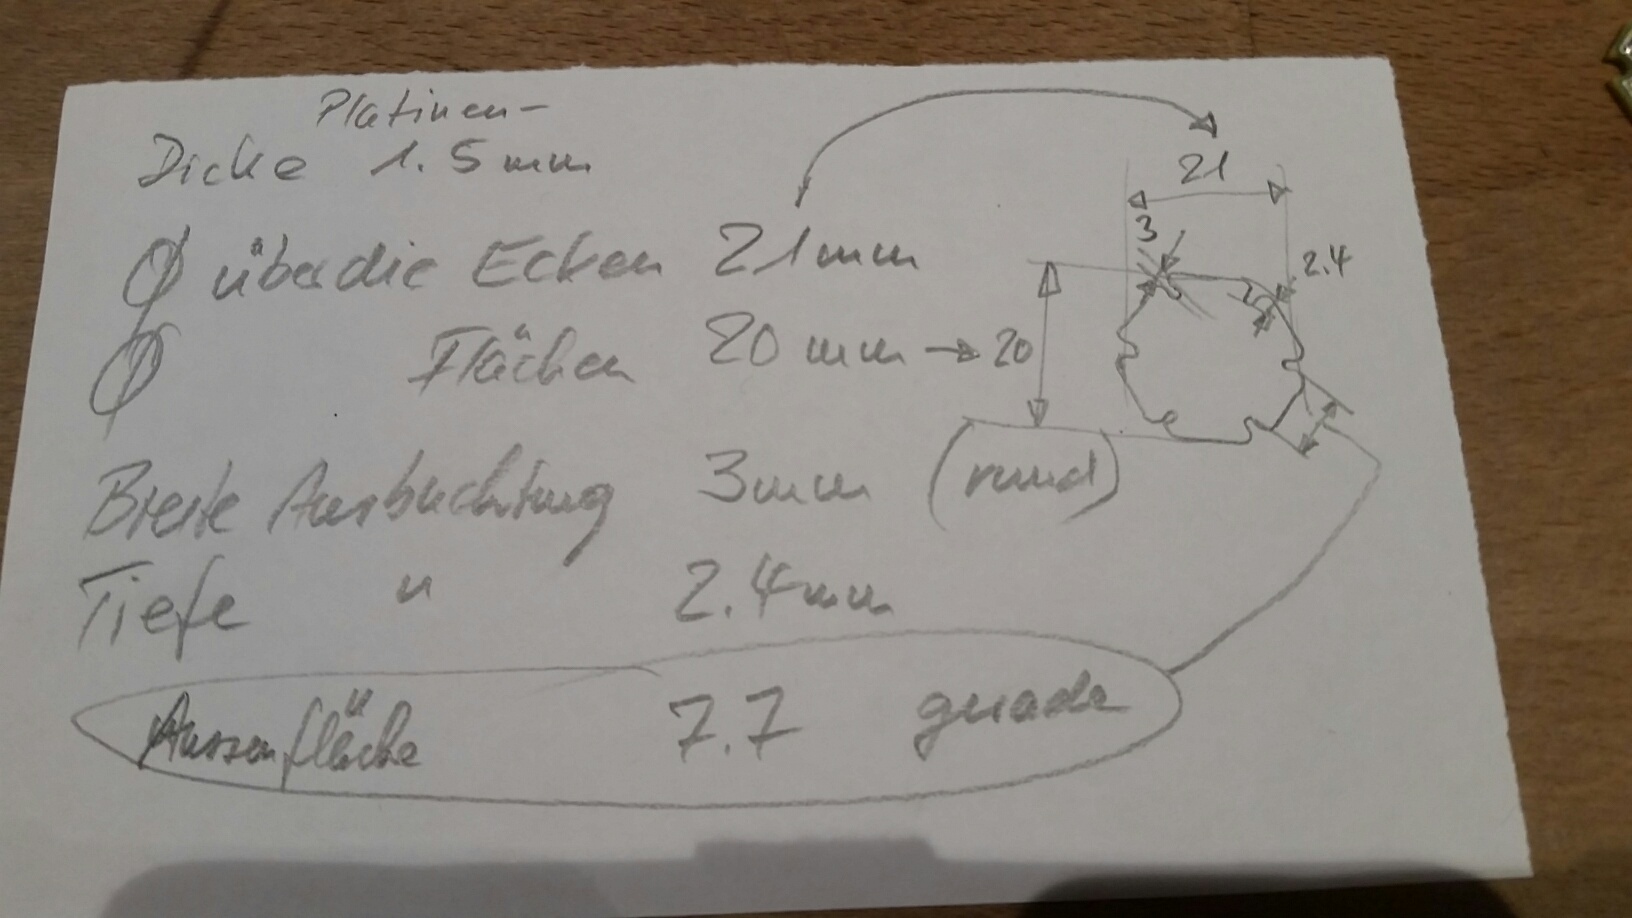 Platinen-
Dicke 1.5mm
Ø über die Ecken 21mm
Ø Flächen 20mm → 20
Breite Ausbuchtung 3mm (rund)
Tiefe " 2.4mm
Aussenfläche 7.7 gerade
21
3
2.4